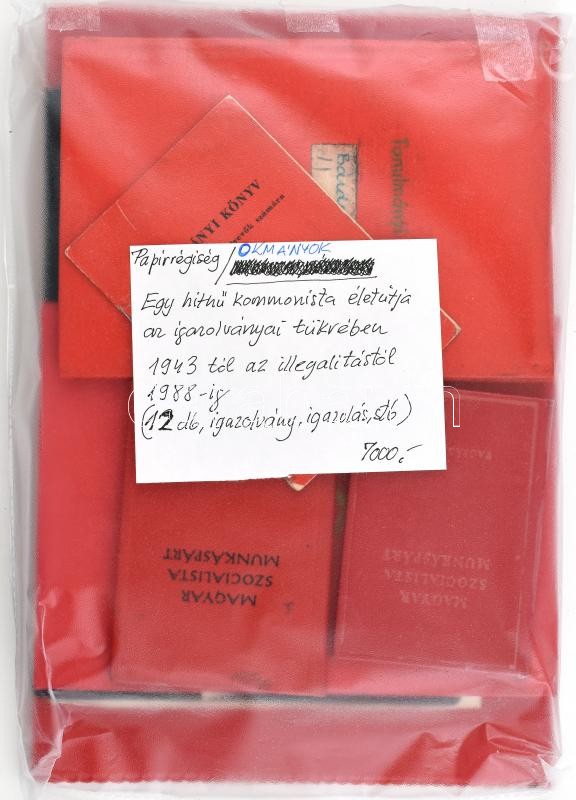 Tanulmányi
ÁNYI KÖNYV
számára
Papírrégiség / OKMÁNYOK
Egy hithű kommonista életútja
az igazolványai tükrében
1943 tól az illegalitástól
1988-ig
(12 db, igazolvány, igazolás, stb)
7000,-
MAGYAR
SZOCIALISTA
MUNKÁSPÁRT
MAGYAR
SZOCIALISTA
MUNKÁSPÁRT